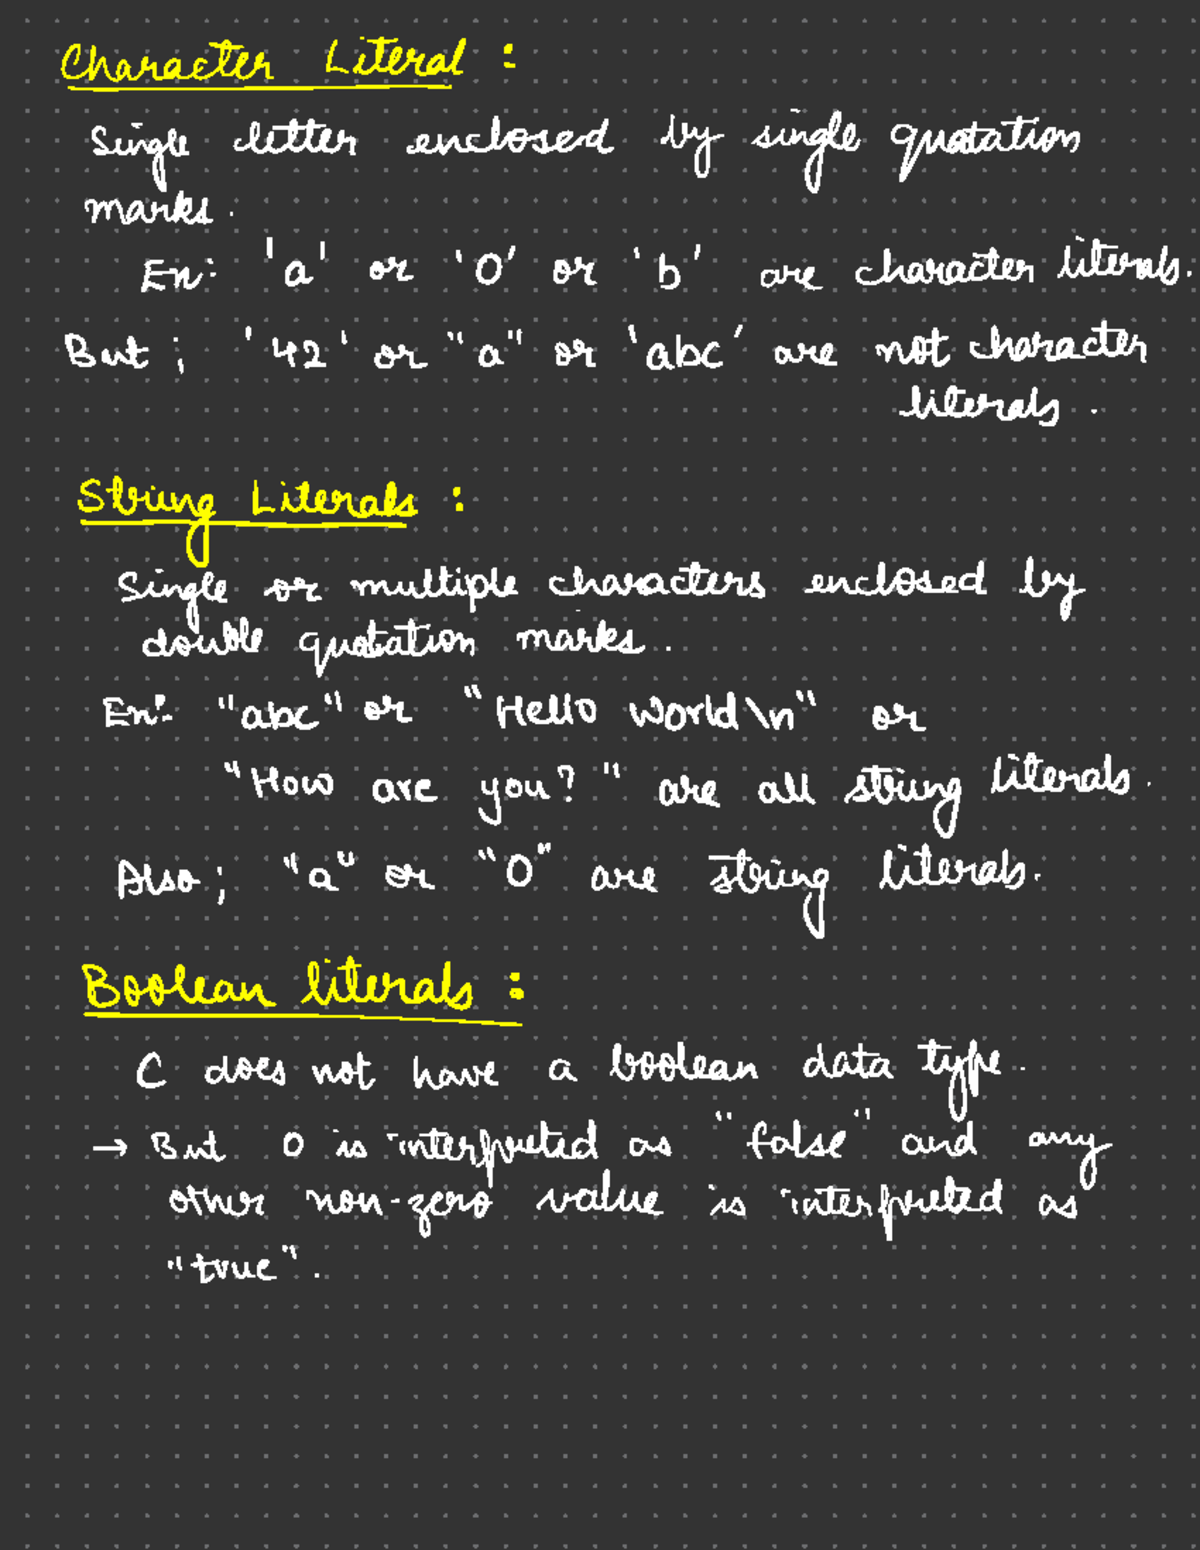 Character Literal :
Single letter enclosed by single quotation
marks.
Ex: 'a' or '0' or 'b' are character literals.
But ; '42' or "a" or 'abc' are not character
literals.
String Literals :
Single or multiple characters enclosed by
double quotation marks.
Ex:- "abc" or "Hello World\n" or
"How are you?" are all string literals.
Also ; "a" or "0" are string literals.
Boolean literals :
C does not have a boolean data type.
→ But 0 is interpreted as "false" and any
other non-zero value is interpreted as
"true".